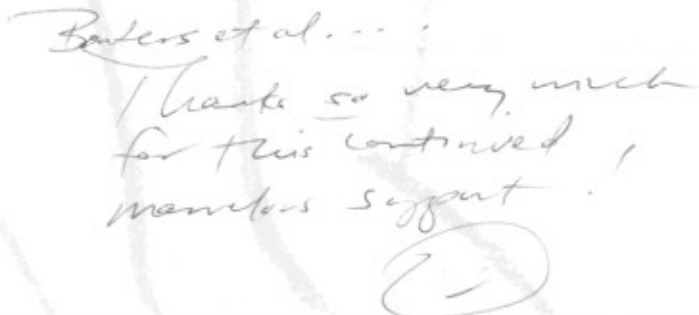 et al....
Thanks so very much
for this continued
marvelous support!